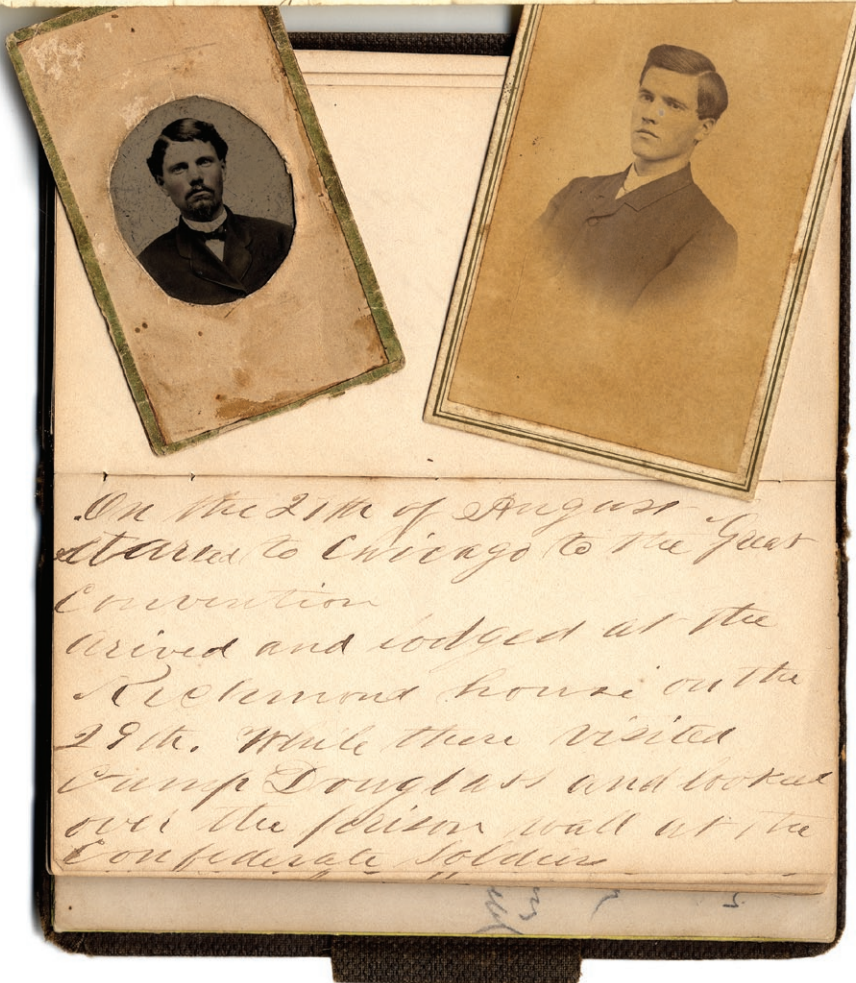 On the 27th of August
Started to Chicago to the Great
Convention
Arived and lodged at the
Richmond house on the
29th. While there visited
Camp Douglass and looked
over the prison wall at the
Confederate Soldiers